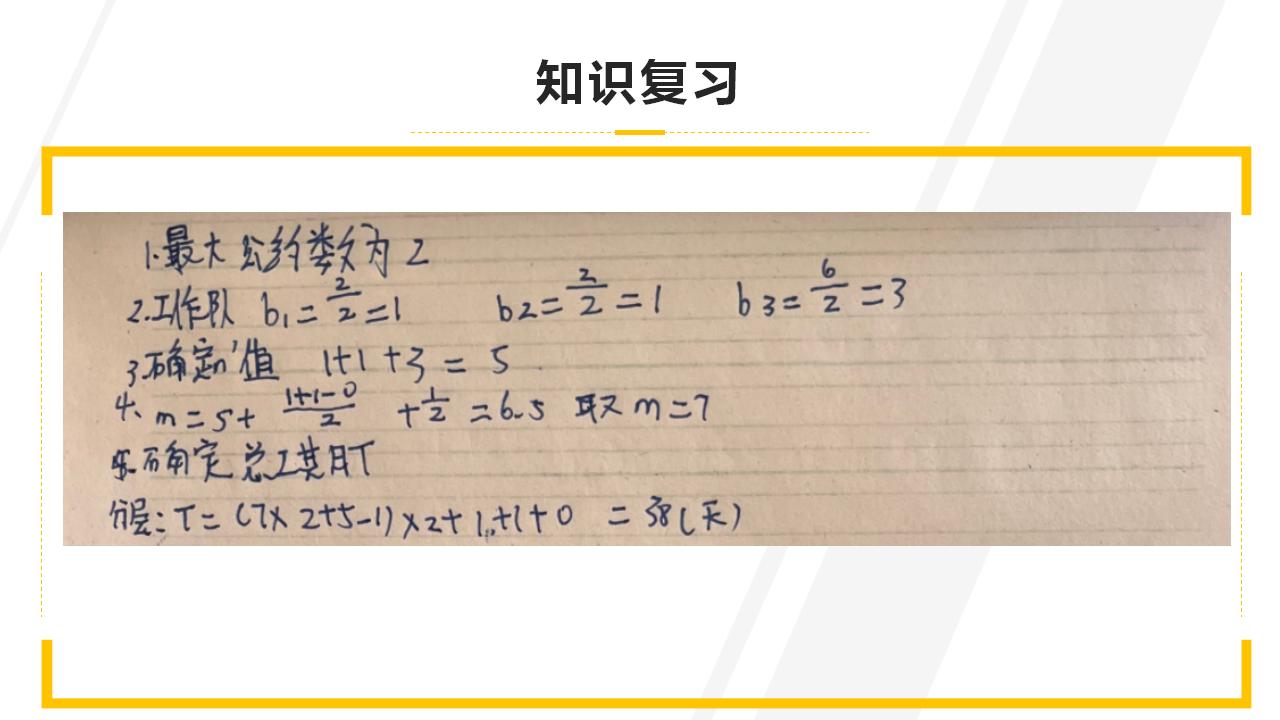 知识复习
1.最大公约数为2
2.工作队 b₁=2/2=1 b2=2/2=1 b3=6/2=3
3.确定n'值 1+1+3=5
4、m=5+(1+1-0)/2 +1/2=6.5 取m=7
5.确定总工其月T
分层:T=(7×2+5-1)×2+1+1+0 =38(天)